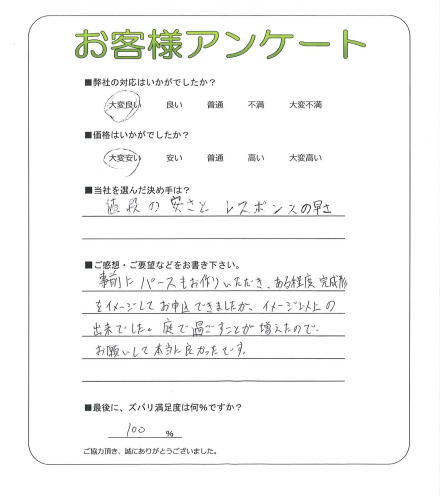 お客様アンケート
■弊社の対応はいかがでしたか？
大変良い 良い 普通 不満 大変不満
■価格はいかがでしたか？
大変安い 安い 普通 高い 大変高い
■当社を選んだ決め手は？
値段の安さと レスポンスの早さ
■ご感想・ご要望などをお書き下さい。
事前にパースもお作りいただき、ある程度、完成形
をイメージしてお申込できましたが、イメージ以上の
出来でした。庭で過ごすことが増えたので、
お願いして本当に良かったです。
■最後に、ズバリ満足度は何％ですか？
100 ％
ご協力頂き、誠にありがとうございました。